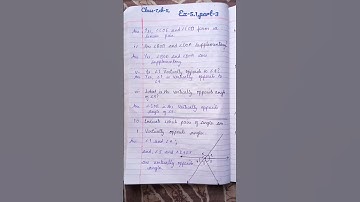 Class-7th-2 Ex-5.1, part-3
Ans Yes, ∠COE and ∠EOD form a
linear pair.
iv Are ∠BOD and ∠DOA supplementary
Ans Yes, ∠BOD and ∠DOA are
supplementary.
v Is ∠1 vertically opposite to ∠4?
Ans Yes, ∠1 is vertically opposite to
∠4
vi What is the vertically opposite angle
of ∠5?
Ans is the vertically opposite
angle of ∠5.
Indicate which pairs of angles are
i Vertically opposite angle.
Ans ∠1 and ∠4,
and, ∠5 and
are vertically opposite
angle.